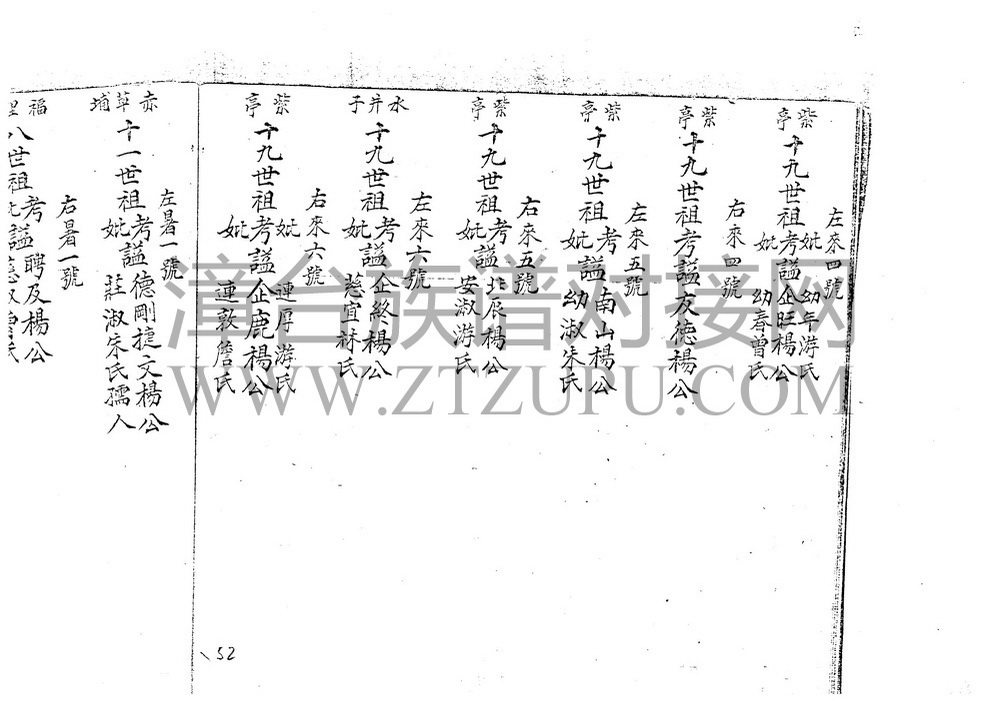 左來四號
紫亭
妣 幼年游氏
十九世祖考謚企旺楊公
妣 幼春曾氏
右來四號
紫亭
十九世祖考謚友德楊公
左來五號
紫亭
十九世祖考謚南山楊公
妣 幼淑朱氏
右來五號
紫亭
十九世祖考謚北辰楊公
妣 安淑游氏
左來六號
水井子
十九世祖考謚企終楊公
妣 慈宜林氏
右來六號
紫亭
妣 連厚游氏
十九世祖考謚企鹿楊公
妣 連敦詹氏
左暑一號
赤草埔
十一世祖考謚德剛捷文楊公
妣 莊淑朱氏孺人
右暑一號
福
八世祖考謚聘及楊公
52
漳台族谱对接网
WWW.ZTZUPU.COM